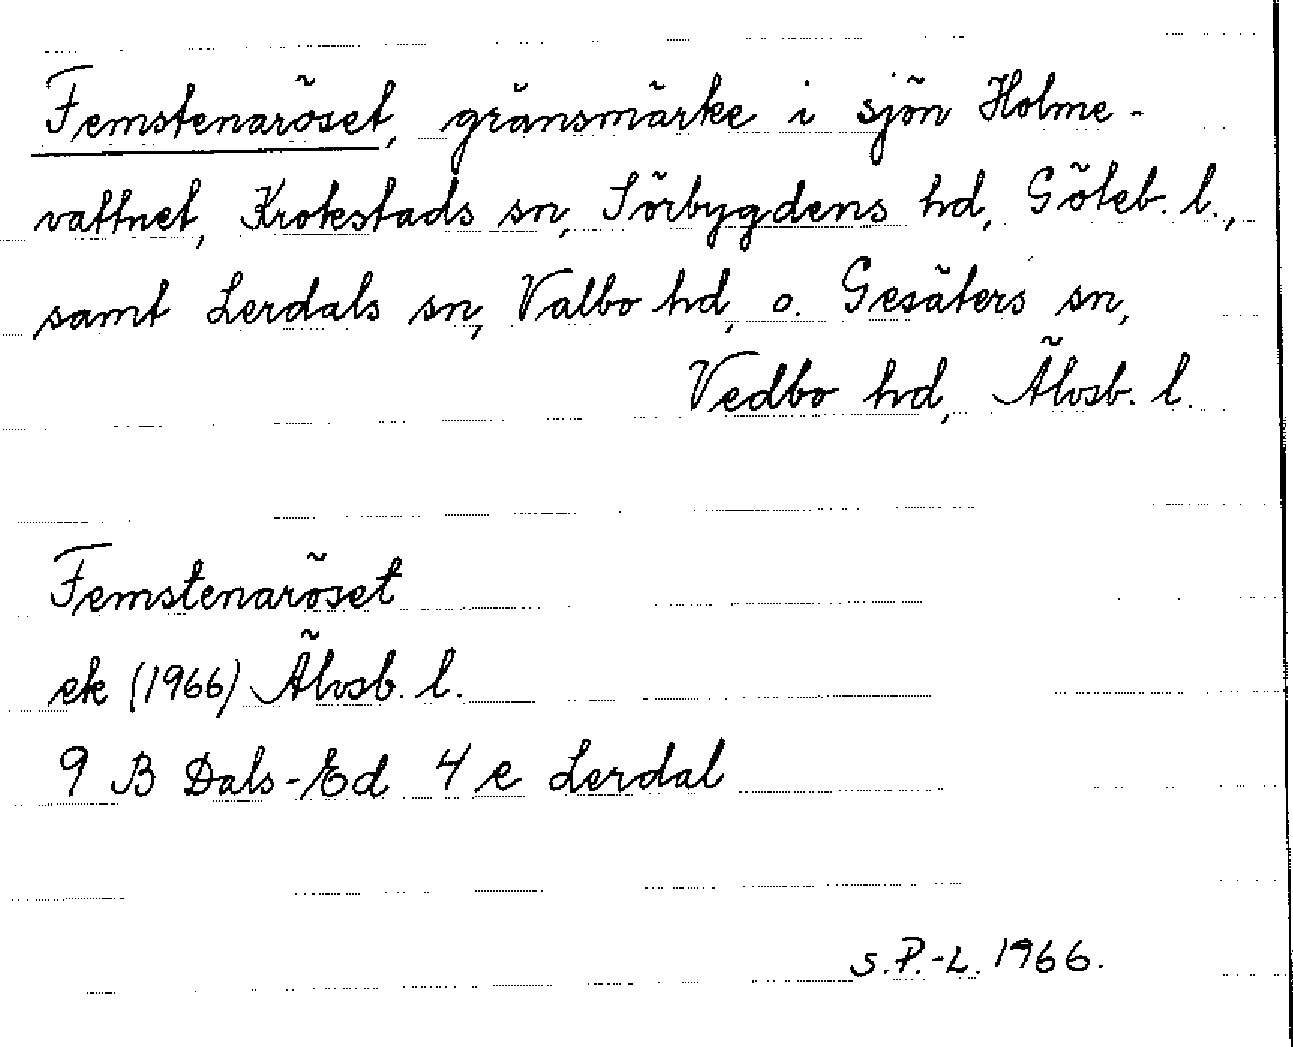 Femstenaröset, gränsmärke i sjön Holme-
vattnet, Krokstads sn, Sörbygdens hd, Göteb. l.,
samt Lerdals sn, Valbo hd, o. Gesäters sn,
Vedbo hd, Älvsb. l.
Femstenaröset
ek (1966) Älvsb. l.
9 B Dals-Ed 4 e Lerdal
S.P.-L. 1966.